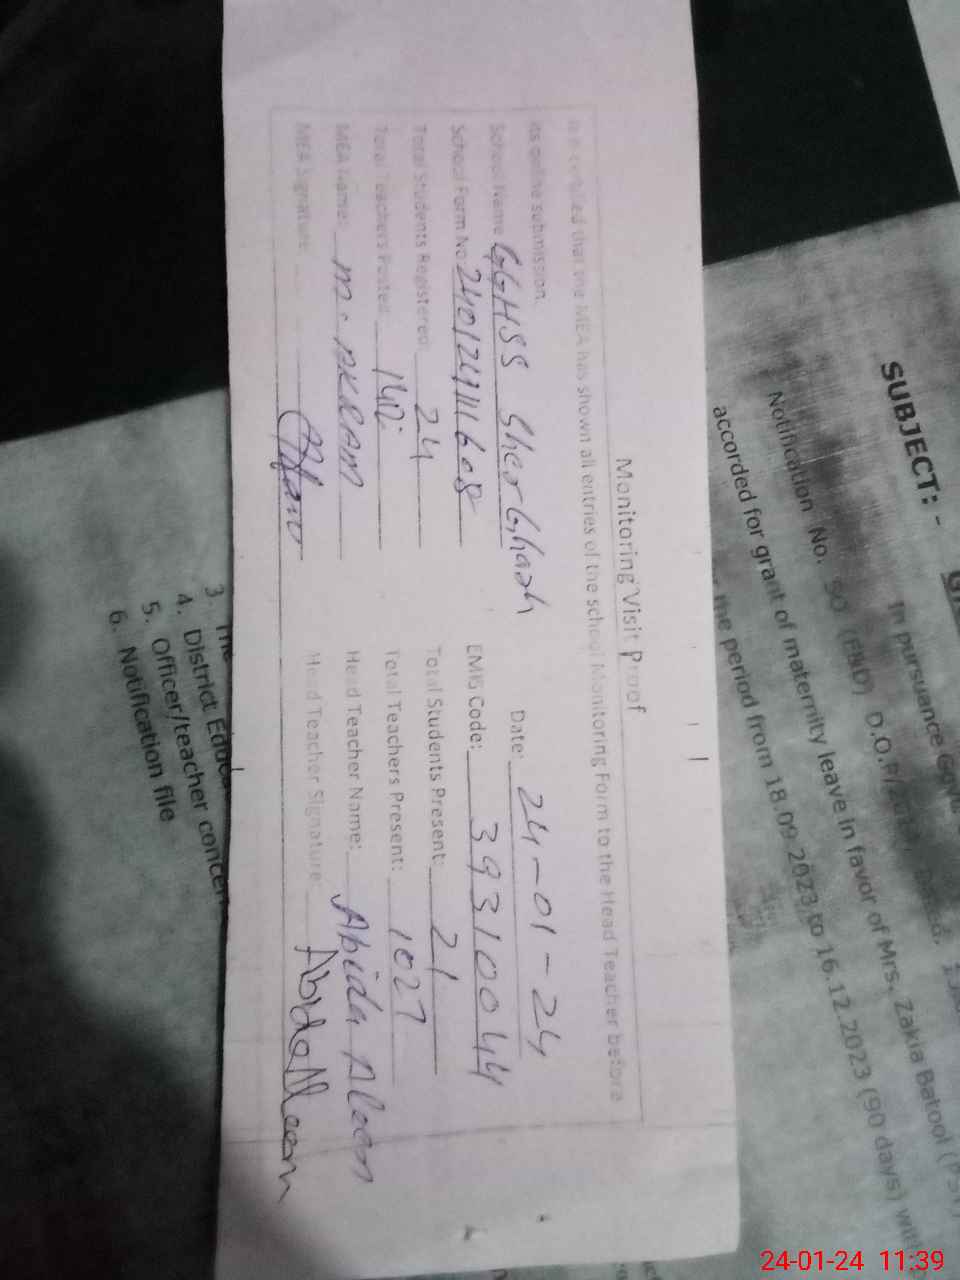 Monitoring Visit Proof
It is certified that the MEA has shown all entries of the school Monitoring Form to the Head Teacher before
its online submission.
Date: 24-01-24
School Name GGHSS Sher Ghash
EMIS Code: 39310044
School Form No: 240124111608
Total Students Registered: 24
Total Students Present: 21
Total Teachers Posted:
Total Teachers Present: 1027
MEA Name: M. AKRAM
Head Teacher Name: Abida Aleem
MEA Signature:
Head Teacher Signature: Abida Aleem
SUBJECT: -
In pursuance Govt.
Notification No. SO
accorded for grant of maternity leave in favor of Mrs. Zakia Batool (PST)
the period from 18.09.2023 to 16.12.2023 (90 days) with
3. The
4. District Educ
5. Officer/teacher concern
6. Notification file
24-01-24 11:39